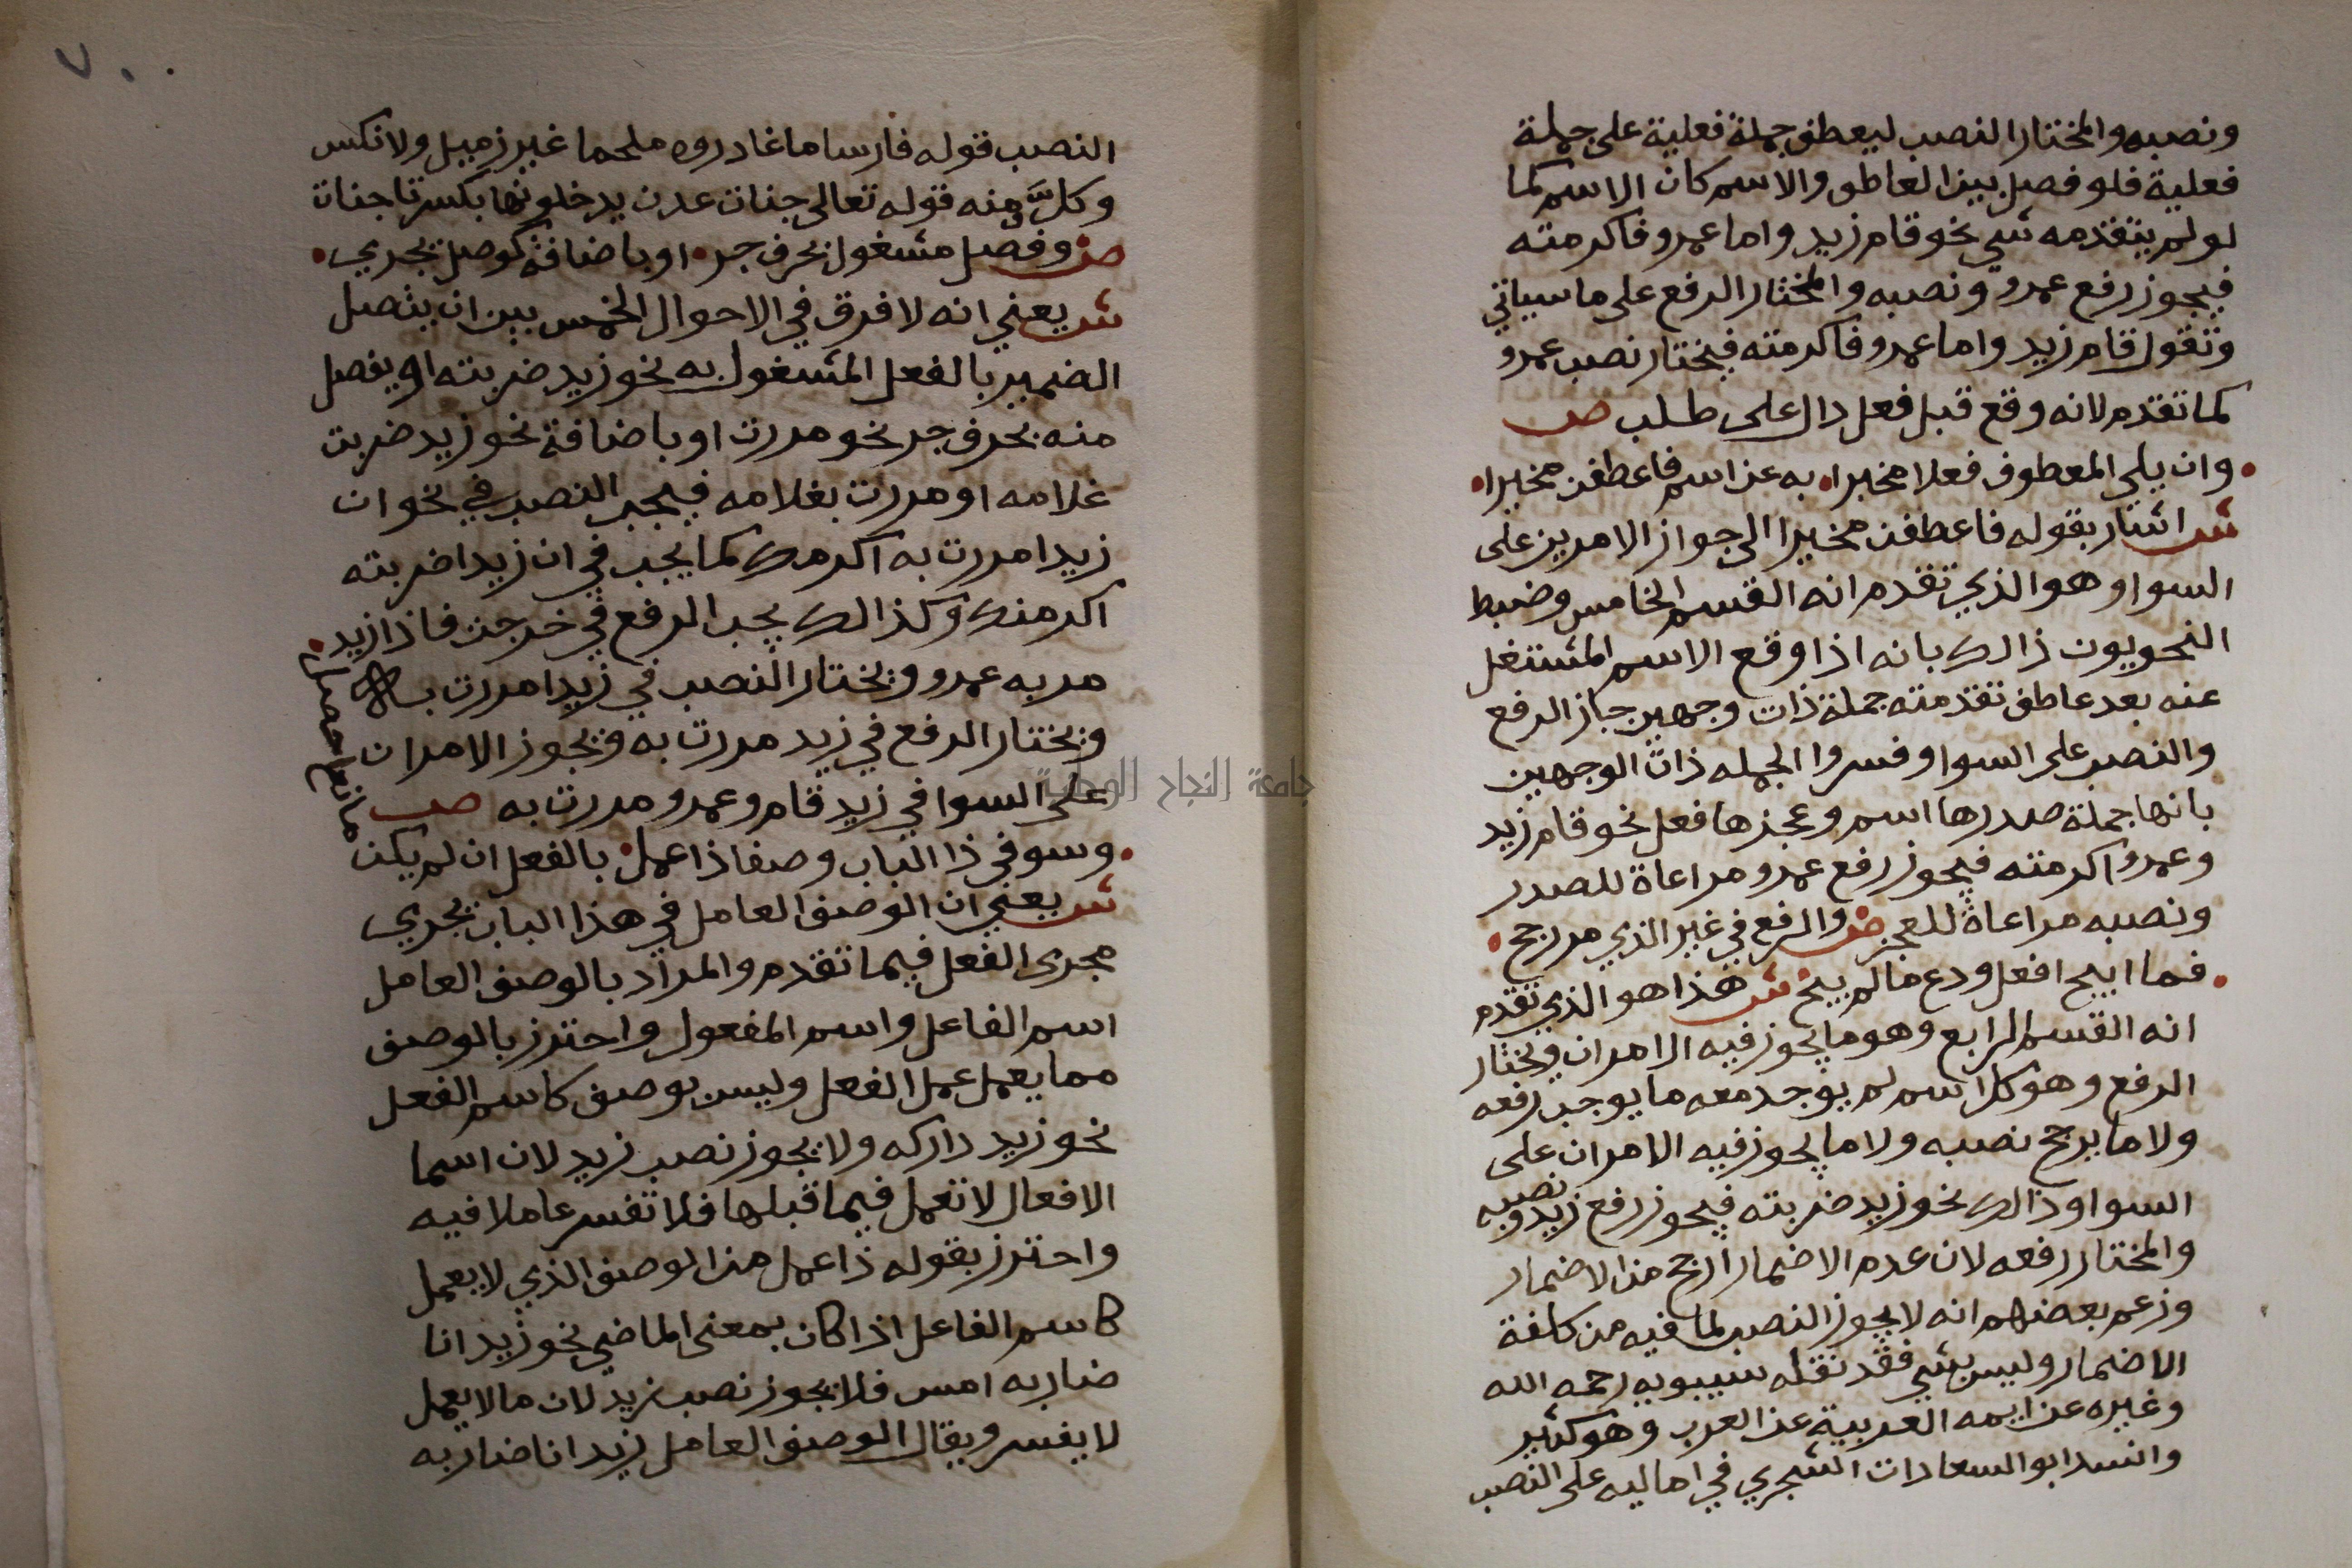 ونصبه والمختار النصب ليعطف جملة فعلية على جملة
فعلية فلو فصل بين العاطف والاسم كان الاسم كما
لو لم يتقدمه شي نحو قام زيد واما عمرو فاكرمته
فيجوز رفع عمرو ونصبه والمختار الرفع على ما سياتي
وتقول قام زيد واما عمرو فاكرمته فيختار نصب عمرو
كما تقدم لانه وقع قبل فعل دال على طلب ص
وان يلي المعطوف فعلا مخبرا به عن اسم فاعطفن مخيرا
ش اشار بقوله فاعطفن مخيرا الى جواز الامرين على
السوا وهو الذي تقدم انه القسم الخامس وضبط
النحويون ذالك بانه اذا وقع الاسم المشتغل
عنه بعد عاطف تقدمته جملة ذات وجهين جاز الرفع
والنصب على السوا وفسروا الجمله ذات الوجهين
بانها جملة صدرها اسم وعجزها فعل نحو قام زيد
وعمرو اكرمته فيجوز رفع عمرو مراعاة للصدر
ونصبه مراعاة للعجز ص والرفع في غير الذي مر رجح
فما ابيح افعل ودع ما لم يبح ش هذا هو الذي تقدم
انه القسم الرابع وهو ما يجوز فيه الامران ويختار
الرفع وهو كل اسم لم يوجد معه ما يوجب رفعه
ولا ما يرجح نصبه ولا ما يجوز فيه الامران على
السوا وذالك نحو زيد ضربته فيجوز رفع زيد ونصبه
والمختار رفعه لان عدم الاضمار ارجح من الاضمار
وزعم بعضهم انه لا يجوز النصب لما فيه من كلفة
الاضمار وليس بشي فقد نقله سيبويه رحمه الله
وغيره عن ايمه العربية عن العرب وهو كثير
وانشد ابو السعادات الشجري في اماليه على النصب
٧٠
النصب قوله فارسا ما غادروه ملحما غير زميل ولا نكس
وكل ومنه قوله تعالى جنات عدن يدخلونها بكسر تا جنات
ص وفصل مشغول بحرف جر او باضافة كوصل يجري
ش يعني انه لا فرق في الاحوال الخمس بين ان يتصل
الضمير بالفعل المشغول به نحو زيد ضربته او يفصل
منه بحرف جر نحو مررت او باضافة نحو زيد ضربت
غلامه او مررت بغلامه فيجب النصب في نحو ان
زيدا مررت به اكرمك كما يجب في ان زيدا ضربته
اكرمك وكذالك يجب الرفع في خرجت فاذا زيد
مر به عمرو ويختار النصب في زيدا مررت به
ويختار الرفع في زيد مررت به ويجوز الامران
على السوا في زيد قام وعمرو مررت به ص
وسو في ذا الباب وصفا ذا عمل بالفعل ان لم يكن
مانع حصل
ش يعني ان الوصف العامل في هذا الباب يجري
مجرى الفعل فيما تقدم والمراد بالوصف العامل
اسم الفاعل واسم المفعول واحترز بالوصف
مما يعمل عمل الفعل وليس بوصف كاسم الفعل
نحو زيد داركه ولا يجوز نصب زيد لان اسما
الافعال لا تعمل فيما قبلها فلا تفسر عاملا فيه
واحترز بقوله ذا عمل من الوصف الذي لا يعمل
كاسم الفاعل اذا كان بمعنى الماضي نحو زيد انا
ضاربه امس فلا يجوز نصب زيد لان ما لا يعمل
لا يفسر ويقال الوصف العامل زيد انا ضاربه
جامعة النجاح الوطنية